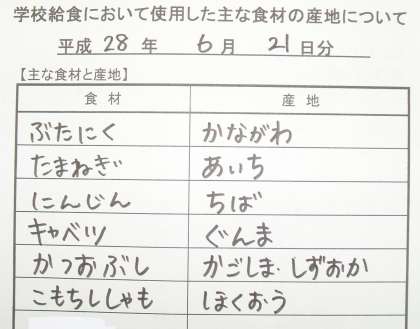 学校給食において使用した主な食材の産地について
平成 28 年 6 月 21 日分
【主な食材と産地】
食材 産地
ぶたにく かながわ
たまねぎ あいち
にんじん ちば
キャベツ ぐんま
かつおぶし かごしま・しずおか
こもちししゃも ほくおう